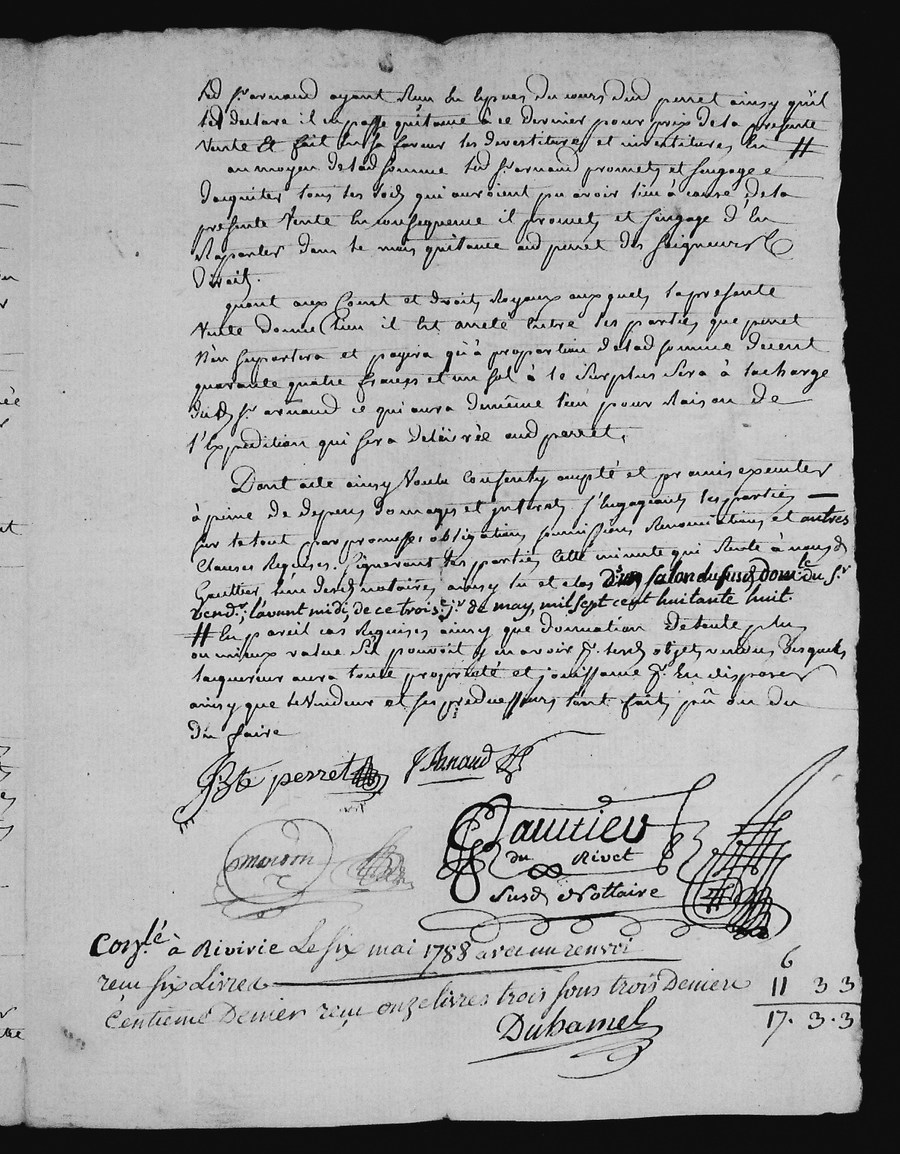 led Sr arnaud ayant reçu en especes du cours dud perret ainsy qu'il
le declare il en passe quitance à ce dernier pour prix de la presente
vente Et fait en sa faveur les devestitures et investitures En #
au moyen de lad somme led Sr arnaud promet et s'engage
d'aquiter tous les lods qui auroient pu avoir lieu à cause de la
presente vente En consequence il promet et s'engage d'En
Raporter dans le mois quitance aud perret des seigneurs
Directs.
quant aux Cout et droits Royaux auxquels la presente
vente donne lieu il Est arreté Entre les parties que perret
n'en suportera et payera qu'à proportion de lad somme de cent
quarante quatre francs et un sol à le surplus sera à la charge
dud Sr arnaud ce qui aura de même lieu pour Raison de
l'Expedition qui sera delivrée aud perret.
Dont acte ainsy voulu consenty accepté et promis executer
à peine de depens domages et interets s'Engageants les parties
sur le tout par promesses obligations soumissions Renonciations et autres
Clauses Requises. signeront les parties Cette minute qui Reste à nousd
Gauttier l'un desd notaires ainsy lu et clos dans salon du susd Domle du Sr
vendr, l'avant midi, de ce troise jr de may, mil sept cent huitante huit.
# En pareil cas Requises ainsy que donnation de toute plus
ou mieux value s'il pouvoit y en avoir pr lesd objets vendus Desquels
l'aquereur aura toute proprieté et jouissance pr En disposer
ainsy que le vendeur et ses predecesseurs l'ont fait, pû ou du
dû faire
Bte perret Arnaud
Gauttier
mouton
du Rivet
susd Nottaire
Conlé à Rivirie Le six mai 1788 avec un renvoi
reçu six Livres 6
Centieme Denier reçu onze livres trois sous trois Deniers 11 3 3
Duhamel 17. 3. 3